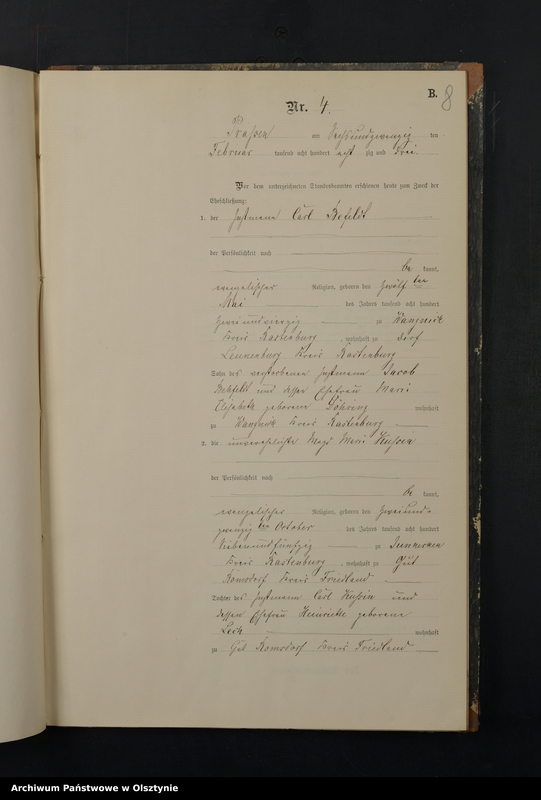 B.
8
Nr. 4.
am Sechsundzwanzig ten
Februar tausend acht hundert acht zig und drei
Vor dem unterzeichneten Standesbeamten erschienen heute zum Zweck der
Eheschließung:
1. der Instmann Carl
der Persönlichkeit nach
be kannt,
evangelischer Religion, geboren den zwölf ten
Mai des Jahres tausend acht hundert
zwei und vierzig zu
Kreis Rastenburg, wohnhaft zu Dorf
Leunenburg Kreis Rastenburg
Sohn des verstorbenen Instmann Jacob
und dessen Ehefrau Marie
Elisabeth geborene Döhring wohnhaft
zu Kreis Rastenburg
2. die unverehelichte Magd Marie
der Persönlichkeit nach
be kannt,
evangelischer Religion, geboren den zweiund-
zwanzig ten October des Jahres tausend acht hundert
siebenundfünfzig zu
Kreis Rastenburg, wohnhaft zu Gut
Romsdorf Kreis Friedland
Tochter des Instmann Carl und
dessen Ehefrau Heinriette geborene
wohnhaft
zu Gut Romsdorf Kreis Friedland
Archiwum Państwowe w Olsztynie